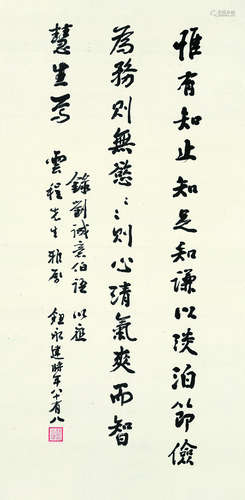 惟有知止知足知謙以淡泊節儉
為務則無慾〻則心清氣爽而智
慧生焉
錄劉誠意伯語以應
雲程先生雅屬
鈕永建時年八十有八